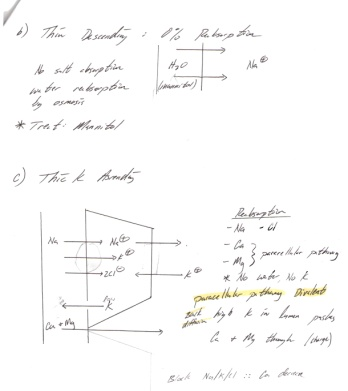 b) Thin Descending : 0% Reabsorption
No salt absorption
water reabsorption
by osmosis
* Treat: Mannitol
H2O
(mannitol)
Na ⊕
c) Thick Ascending
Na
Na ⊕
K ⊕
2Cl ⊖
K ⊕
K
Ca + Mg
Reabsorption
- Na - Cl
- Ca
- Mg } paracellular pathway
* No water, No K
paracellular pathway Divalents
Back diffusion high K in lumen pushes
Ca + Mg through (charge)
Block Na/K/Cl ::